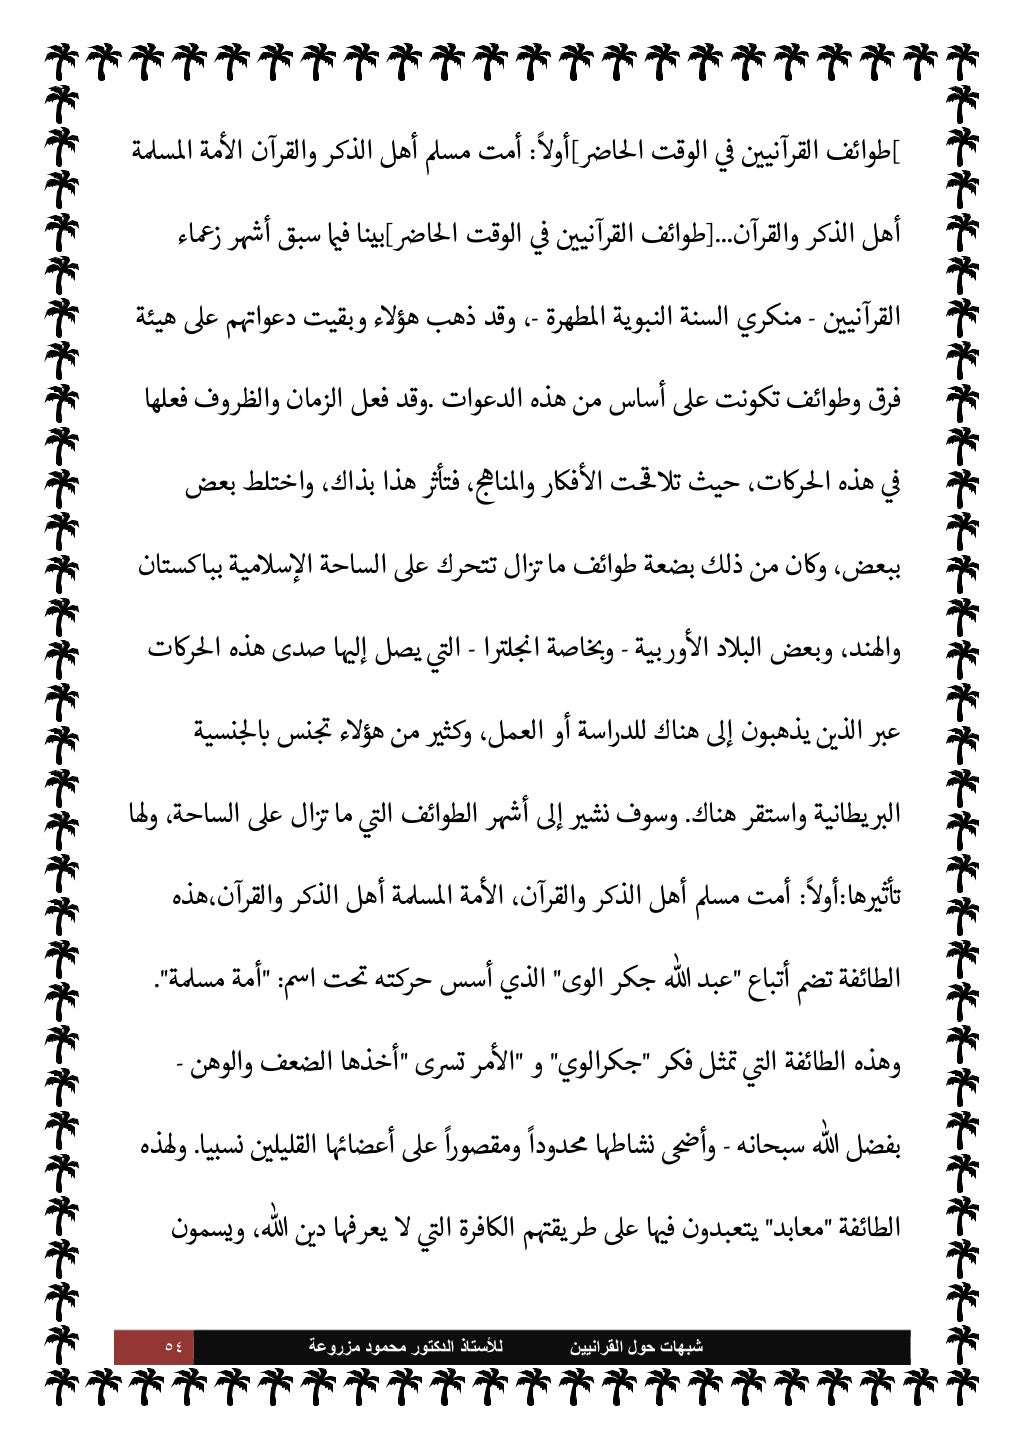 ]طوائف القرآنيين في الوقت الحاضر]أولاً: أمت مسلم أهل الذكر والقرآن الأمة المسلمة
أهل الذكر والقرآن...[طوائف القرآنيين في الوقت الحاضر]بينا فيما سبق أشهر زعماء
القرآنيين - منكري السنة النبوية المطهرة -، وقد ذهب هؤلاء وبقيت دعواتهم على هيئة
فرق وطوائف تكونت على أساس من هذه الدعوات .وقد فعل الزمان والظروف فعلها
في هذه الحركات، حيث تلاقحت الأفكار والمناهج، فتأثر هذا بذاك، واختلط بعض
ببعض، وكان من ذلك بضعة طوائف ما تزال تتحرك على الساحة الإسلامية بباكستان
والهند، وبعض البلاد الأوربية - وبخاصة انجلترا - التي يصل إليها صدى هذه الحركات
عبر الذين يذهبون إلى هناك للدراسة أو العمل، وكثير من هؤلاء تجنس بالجنسية
البريطانية واستقر هناك. وسوف نشير إلى أشهر الطوائف التي ما تزال على الساحة، ولها
تأثيرها:أولاً: أمت مسلم أهل الذكر والقرآن، الأمة المسلمة أهل الذكر والقرآن،هذه
الطائفة تضم أتباع "عبد الله جكر الوى" الذي أسس حركته تحت اسم: "أمة مسلمة".
وهذه الطائفة التي تمثل فكر "جكرالوي" و "الأمر تسرى "أخذها الضعف والوهن -
بفضل الله سبحانه - وأضحى نشاطها محدوداً ومقصوراً على أعضائها القليلين نسبيا. ولهذه
الطائفة "معابد" يتعبدون فيها على طريقتهم الكافرة التي لا يعرفها دين الله، ويسمون
شبهات حول القرانيين للأستاذ الدكتور محمود مزروعة ٥٤